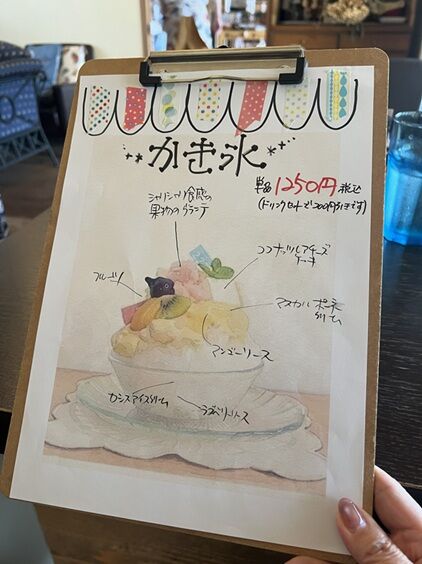 かき氷
単品 1250円 税込
(ドリンクセットで200円引きです)
シャリシャリ食感の
果物のグラニテ
ココナッツレアチーズ
ケーキ
フルーツ
マスカルポーネ
クリーム
マンゴーソース
カシスアイスクリーム
ラズベリーソース